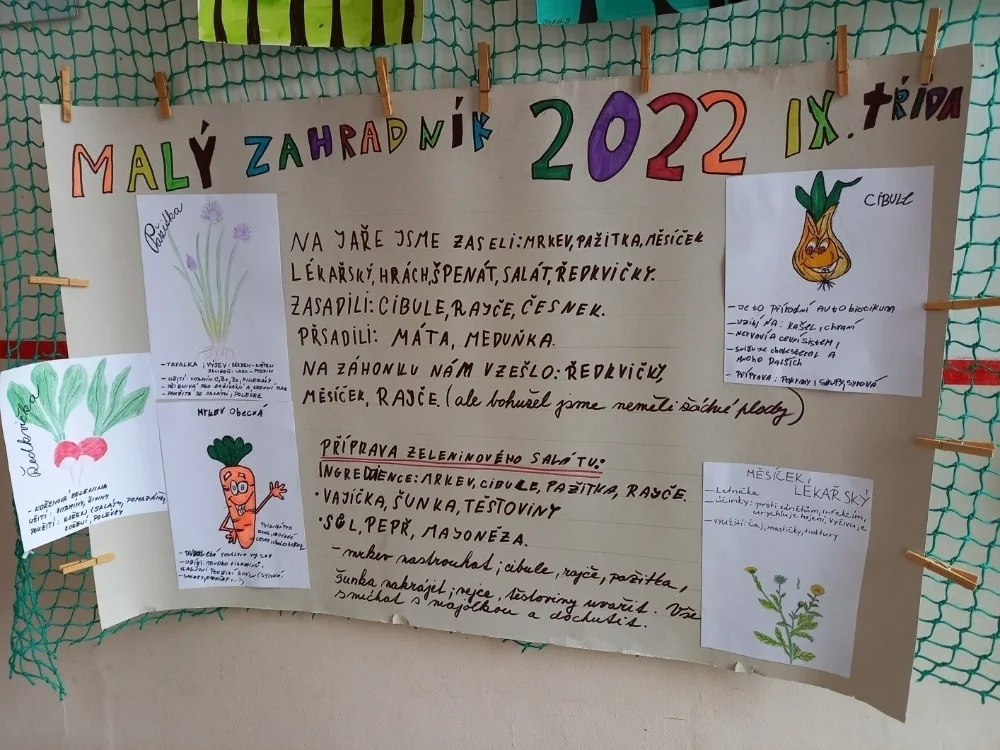 MALÝ ZAHRADNÍK 2022 IX. TŘÍDA
Pažitka
NA JAŘE JSME ZASELI: MRKEV, PAŽITKA, MĚSÍČEK
LÉKAŘSKÝ, HRÁCH, ŠPENÁT, SALÁT, ŘEDKVIČKY.
ZASADILI: CIBULE, RAJČE, ČESNEK.
PŘSADILI: MÁTA, MEDUŇKA.
NA ZÁHONKU NÁM VZEŠLO: ŘEDKVIČKY,
MĚSÍČEK, RAJČE. (ale bohušel jsme neměli žádné plody)
PŘÍPRAVA ZELENINOVÉHO SALÁTU:
INGREDIENCE: MRKEV, CIBULE, PAŽITKA, RAJČE.
• VAJÍČKA, ŠUNKA, TĚSTOVINY
• SŮL, PEPŘ, MAYONÉZA.
- mrkev nastrouhat, cibule, rajče, pažitka,
šunka nakrájit, vejce, těstoviny uvařit. Vše
smíchat s majólkou a dochutit.
- TRVALKA, VÝSEV: BŘEZEN - KVĚTEN
- UŽITÍ: VITAMÍN C, B2, MINERÁLY
- POUŽITÍ: DO SALÁTŮ, POLÉVEK
Ředkvička
- KOŘENOVÁ ZELENINA
UŽITÍ: VITAMÍNY,
POUŽITÍ: KOŘEN (SALÁTY, POMAZÁNKY
POLÉVKY
MRKEV OBECNÁ
CIBULE
- JE TO PŘÍRODNÍ AUTOBIOTIKUM
- UŽITÍ NA: KAŠEL, CHRÁNÍ
- NERVOVÍ A CÉVNÍ SISTEM,
- SNIŽUJE CHOLESTEROL A
MNOHO DALŠÍCH
- PŘÍPRAVA: POKRMY, SIRUPY, SYROVÁ
MĚSÍČEK LÉKAŘSKÝ
- Letnička
- účinky: proti zánětům, infekcím,
urychluje hojení, vyživuje
- využití: čaj, mastičky, tinktury